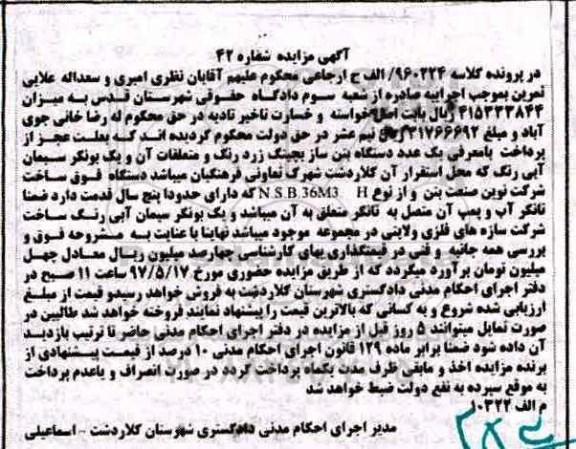 آگهی مزایده شماره ۴۲
در پرونده کلاسه ۹۶۰۲۲۴/ الف ح ارجاعی محکوم علیهم آقایان نظری امیری و سعداله علایی
ثمرین بموجب اجراییه صادره از شعبه سوم دادگاه حقوقی شهرستان قدس به میزان
۴۱۵۳۳۳۸۴۴ ریال بابت اصل خواسته و خسارت تاخیر تادیه در حق محکوم له رضا خانی جوی
آباد و مبلغ ۳۱۷۶۶۶۹۲ ریال نیم عشر در حق دولت محکوم گردیده اند که بعلت عجز از
پرداخت بامعرفی یک عدد دستگاه بتن ساز بچینگ زرد رنگ و متعلقات آن و یک بونکر سیمان
آبی رنگ که محل استقرار آن کلاردشت شهرک تعاونی فرهنگیان میباشد دستگاه فوق ساخت
شرکت نوین صنعت بتن و از نوع N.S.B.36M3 H که دارای حدودا پنج سال قدمت دارد ضمنا
تانکر آب و پمپ آن متصل به تانکر متعلق به آن میباشد و یک بونکر سیمان آبی رنگ ساخت
شرکت سازه های فلزی ولایتی در مجموعه موجود میباشد نهایتا با عنایت به مشروحه فوق و
بررسی همه جانبه و فنی در قیمتگذاری بهای کارشناسی چهارصد میلیون ریال معادل چهل
میلیون تومان برآورد میگردد که از طریق مزایده حضوری مورخ ۹۷/۵/۱۷ ساعت ۱۱ صبح در
دفتر اجرای احکام مدنی دادگستری شهرستان کلاردشت به فروش خواهد رسیدو قیمت از مبلغ
ارزیابی شده شروع و به کسانی که بالاترین قیمت را پیشنهاد نمایند فروخته خواهد شد طالبین در
صورت تمایل میتوانند ۵ روز قبل از مزایده در دفتر اجرای احکام مدنی حاضر تا ترتیب بازدید
آن داده شود ضمنا برابر ماده ۱۲۹ قانون اجرای احکام مدنی ۱۰ درصد از قیمت پیشنهادی از
برنده مزایده اخذ و مابقی ظرف مدت یکماه پرداخت گردد در صورت انصراف و یاعدم پرداخت
به موقع سپرده به نفع دولت ضبط خواهد شد
م الف ۱۰۳۲۲
مدیر اجرای احکام مدنی دادگستری شهرستان کلاردشت - اسماعیلی